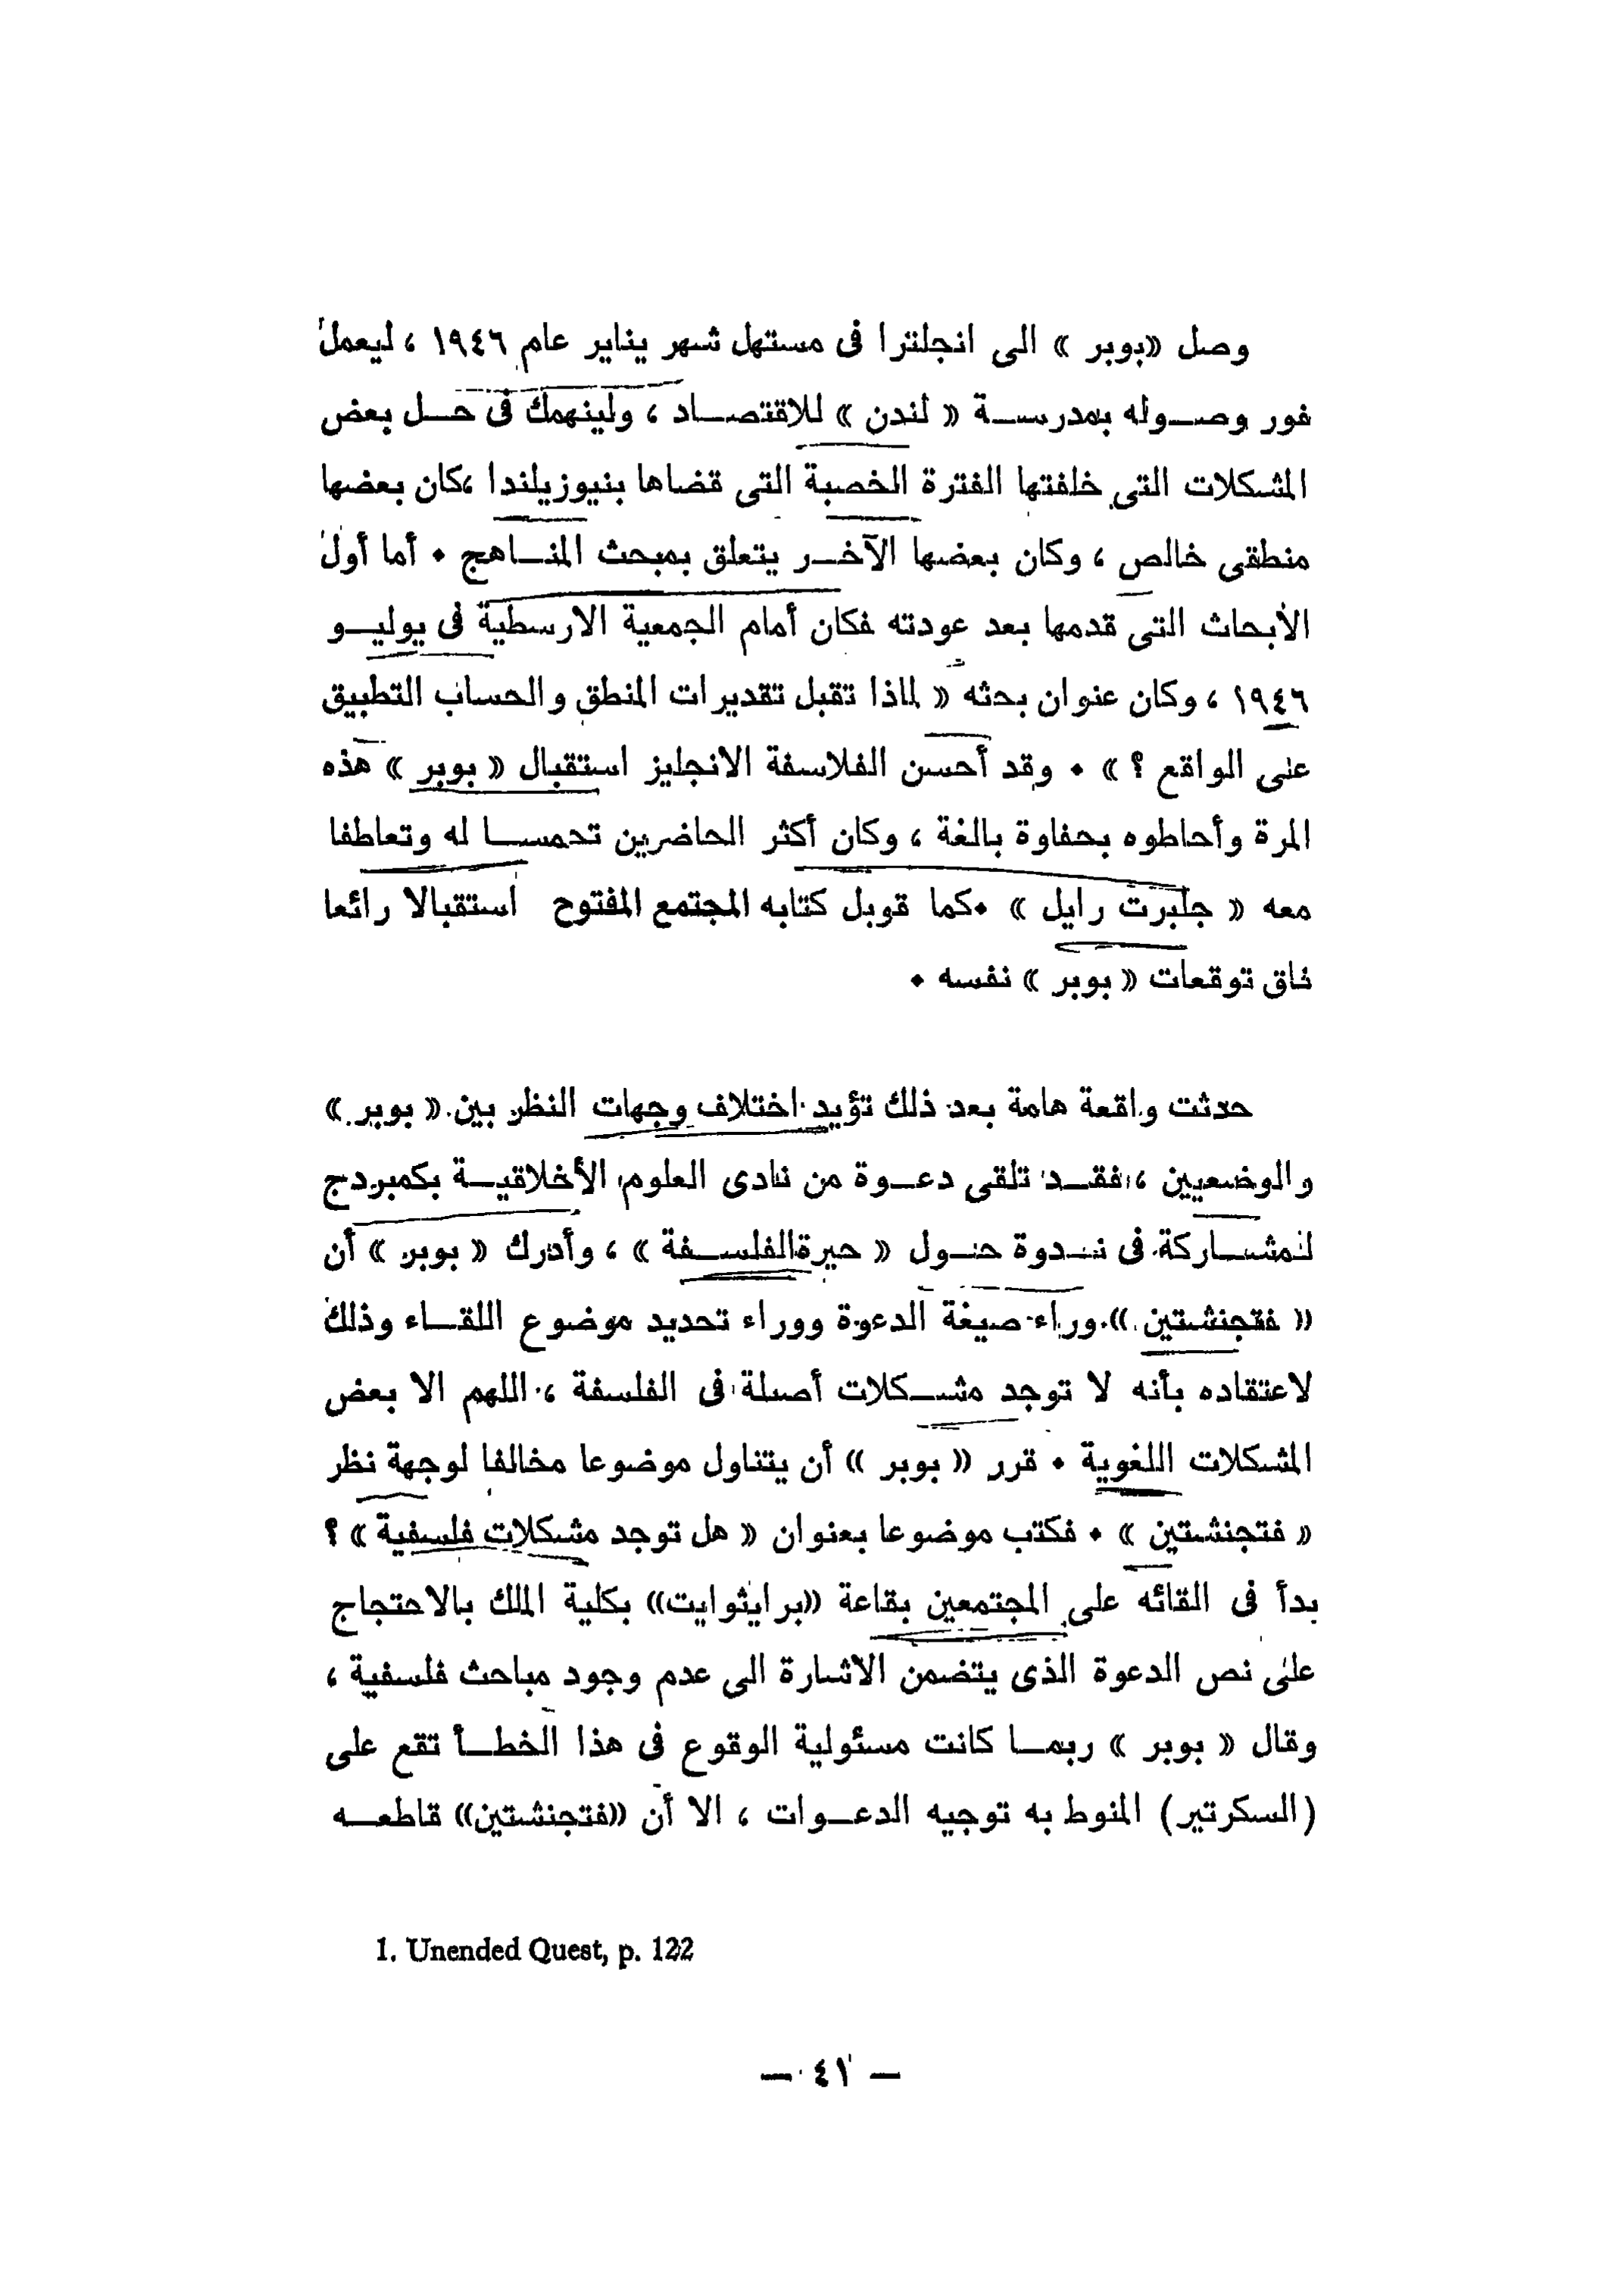 وصل «بوبر» الى انجلترا فى مستهل شهر يناير عام ١٩٤٦ ، ليعمل
فور وصوله بمدرسة « لندن » للاقتصاد ، ولينهمك فى حل بعض
المشكلات التى خلفتها الفترة الخصبة التى قضاها بنيوزيلندا ،كان بعضها
منطقى خالص ، وكان بعضها الآخر يتعلق بمبحث المناهج . أما أول
الأبحاث التى قدمها بعد عودته فكان أمام الجمعية الارسطية فى يوليو
١٩٤٦ ، وكان عنوان بحثه « لماذا تقبل تقديرات المنطق والحساب التطبيق
على الواقع ؟ » . وقد أحسن الفلاسفة الانجليز استقبال « بوبر » هذه
المرة وأحاطوه بحفاوة بالغة ، وكان أكثر الحاضرين تحمسا له وتعاطفا
معه « جلبرت رايل » .كما قوبل كتابه المجتمع المفتوح استقبالا رائعا
فاق توقعات « بوبر » نفسه .
حدثت واقعة هامة بعد ذلك تؤيد اختلاف وجهات النظر بين « بوبر »
والوضعيين ، فقد تلقى دعوة من نادى العلوم الأخلاقية بكمبردج
للمشاركة فى ندوة حول « حيرة الفلسفة » ، وأدرك « بوبر » أن
« فتجنشتين » وراء صيغة الدعوة ووراء تحديد موضوع اللقاء وذلك
لاعتقاده بأنه لا توجد مشكلات أصلة فى الفلسفة ، اللهم الا بعض
المشكلات اللغوية . قرر « بوبر » أن يتناول موضوعا مخالفا لوجهة نظر
« فتجنشتين » . فكتب موضوعا بعنوان « هل توجد مشكلات فلسفية » ؟
بدأ فى القائه على المجتمعين بقاعة «برايثوايت» بكلية الملك بالاحتجاج
على نص الدعوة الذى يتضمن الاشارة الى عدم وجود مباحث فلسفية ،
وقال « بوبر » ربما كانت مسئولية الوقوع فى هذا الخطأ تقع على
(السكرتير) المنوط به توجيه الدعوات ، الا أن «فتجنشتين» قاطعه
1. Unended Quest, p. 122
— ٤١ —